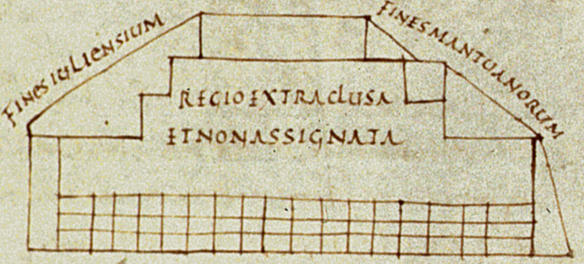 FINES IULIENSIUM
FINES MANTUANORUM
REGIO EXTRACLUSA
ET NON ASSIGNATA